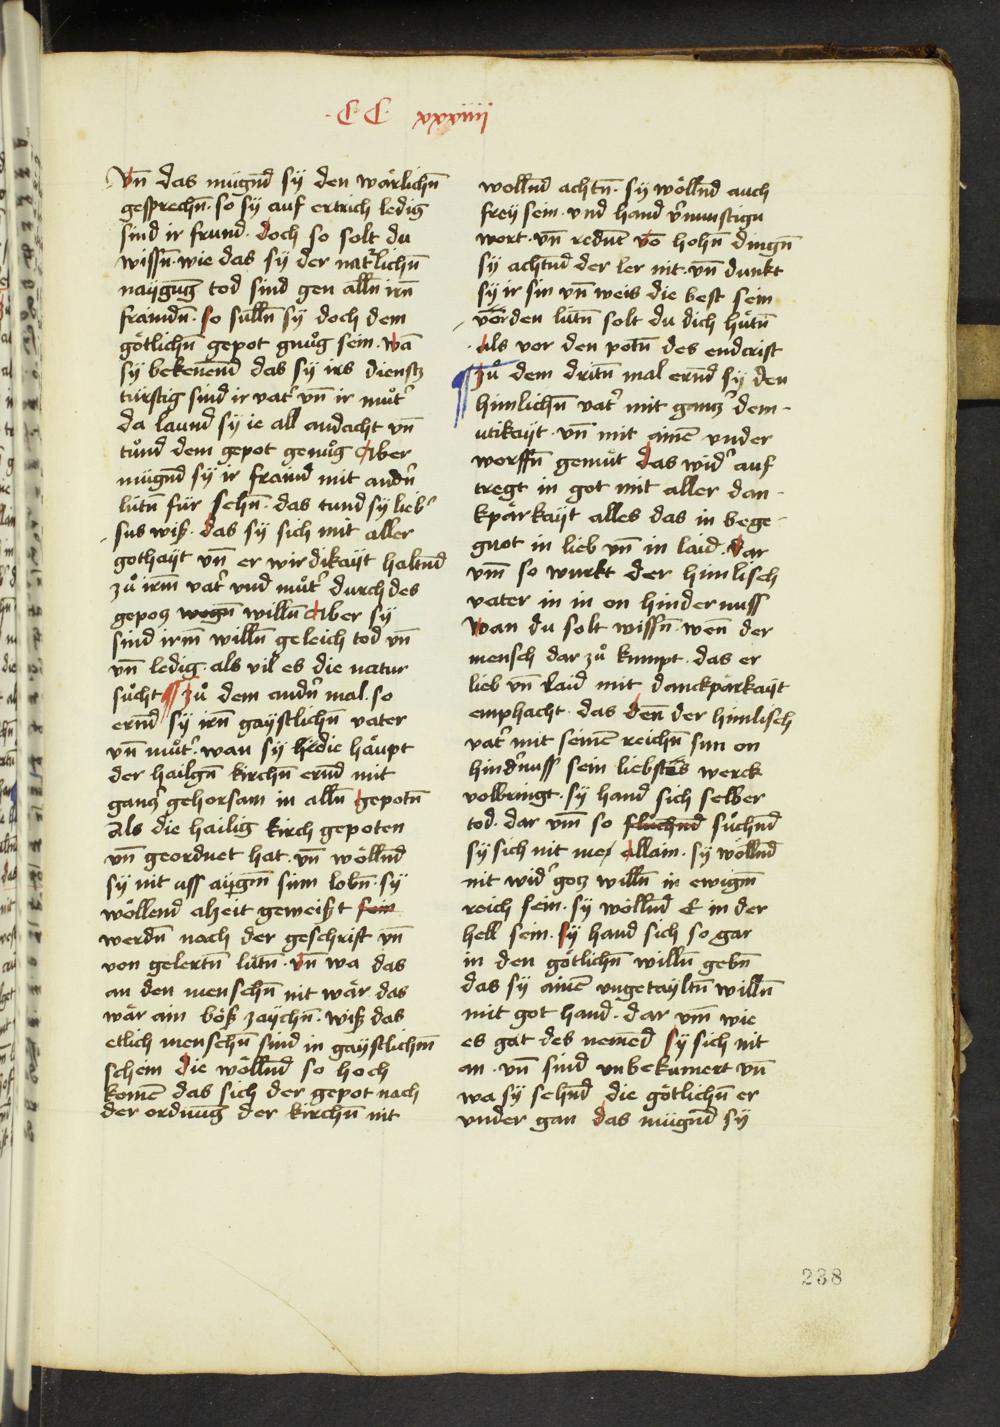 ·C C· xxxiiii
Vn̄ das mügn̄d sÿ den wärlichn̄
gesprechn̄· so sÿ auf ertrich ledig
sind ir frund· doch so solt du
wissn̄· wie das sÿ der natʼlichn̄
naÿgūg tod sind gen alln̄ irn̄
fraindn̄· so sülln̄ sÿ doch dem
götlichn̄ gepot gnuͦg sein· wā
sÿ bekenēnd das sÿ irs dienstz
türftig sind ir vatʼ vn̄ ir muͦtʼ
da laund sÿ ie all andacht vn̄
tuͦnd dem gepot genuͦg Aber
mügn̄d sÿ ir fraind mit andʼn
lütn̄ für sehn̄· das tund sÿ liebʼ
sus wiß· das sÿ sich mit aller
gothaÿt vn̄ er wirdikaÿt haltn̄d
zuͦ irm̄ vatʼ vnd muͦtʼ durch des
gepoz wegn̄ willn̄ Aber sÿ
sind irm̄ willn̄ geleich tod vn̄
vn̄ ledig· als vil es die natur
suͦcht ¶ zuͦ dem andʼn mal· so
ern̄d sÿ irn̄ gaÿstlichn̄ vater
vn̄ muͦtʼ· wan sÿ die häupt
der hailgn̄ kirchn̄ ern̄d mit
ganzʼ gehorsam in alln̄ gepotn̄
Als die hailig kirch gepoten
vn̄ geordnet hat· vn̄ wölln̄d
sÿ nit uss aÿgm̄ sinn lebn̄· sÿ
wöllend alzeit geweißt sein
werdn̄ nach der geschrift vn̄
von gelertn̄ lütn̄· vn̄ wa das
an den menschn̄ nit wär das
wär ain böß zaÿchn̄· wiß das
etlich menschn̄ sind in gaÿstlichm̄
schein die wölln̄d so hoch
komē das sich der gepot nach
der ordnūg der kirchn̄ nit
wolln̄d achtn̄· sÿ wölln̄d auch
freÿ sein· vnd hand vʼnunftign
wort· vn̄ redn̄t vō hohn̄ dingn̄
sÿ achtn̄d der ler nit· vn̄ dunkt
sÿ ir sin vn̄ weis die best sein
vor den lütn̄ solt du dich hütn̄
als vor den potn̄ des endcrist
¶ Zuͦ dem dritn̄ mal ern̄d sÿ den
himlichn̄ vatʼ mit ganzʼ dem-
utikaÿt· vn̄ mit ainē vnder
worffn̄ gemüt das widʼ auf
tregt in got mit aller dan-
kpärkaÿt alles das in bege-
gnot in lieb vn̄ in laid· Dar
vm̄ so wurkt der himlisch
vater in in on hindernuss
Wan du solt wissn̄· wen̄ der
mensch dar zuͦ kumpt· das er
lieb vn̄ laid mit danckpärkaÿt
emphacht· das den̄ der himlisch
vatʼ mit seinē reichn̄ sun on
hindʼnuss sein liebstes werck
volbringt· sÿ hand sich selber
tod· dar vm̄ so fluchn̄d suͦchn̄d
sÿ sich nit me allain· sÿ wölln̄d
nit widʼ gotz willn̄ in ewigm̄
reich sein· sÿ wölln̄d E in der
hell sein· sÿ hand sich so gar
in den götlichn̄ willn̄ gebn̄
das sÿ ainē vngetaÿltn̄ willn̄
mit got hand· dar vm̄ wie
es gat des nemēd sÿ sich nit
an· vn̄ sind vnbekumert vn̄
wa sÿ sehn̄d die götlichn̄ er
vnder gan das mügn̄d sÿ
238